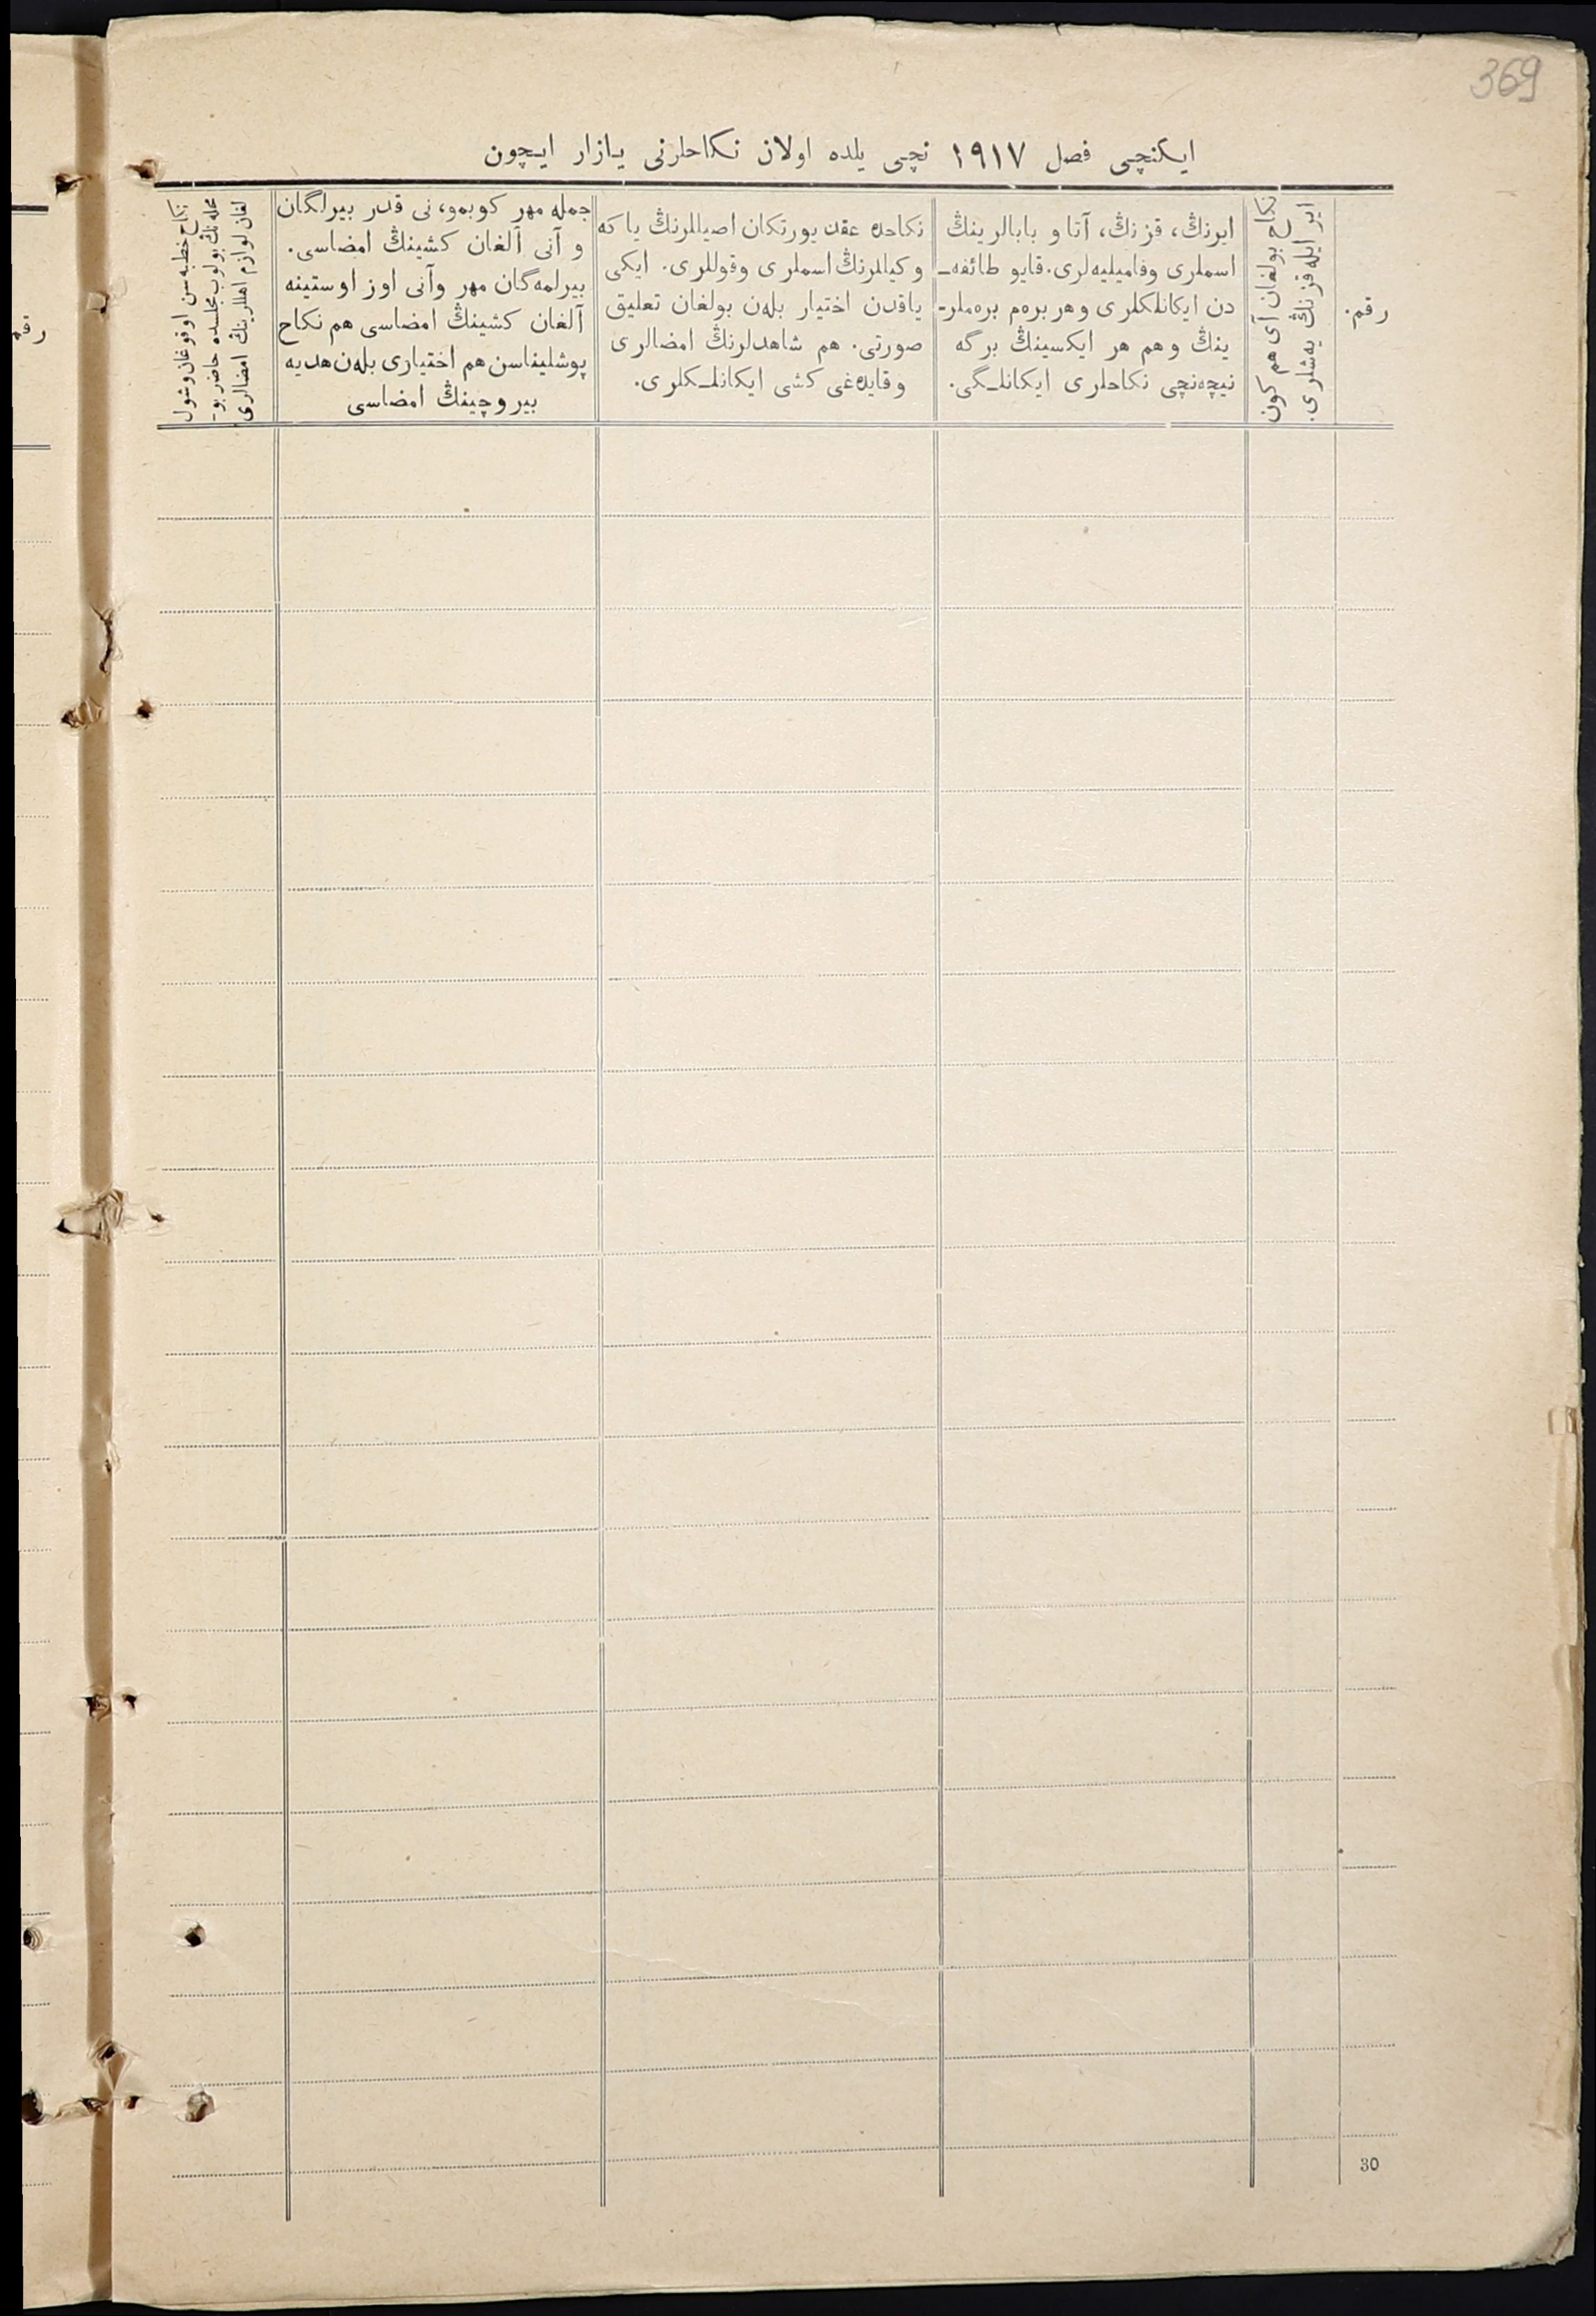 369
ایکنچی فصل ۱۹۱۷ نچی یلده اولان نکاحلرنی یازار ایچون
رقم.
نکاح بولغان آی هم کون
ایر ایله قزنڭ یه‌شلری.
ایرنڭ، قزنڭ، آتا و بابالرینڭ
اسملری وفامیلیه‌لری. قایو طائفه‌ـ
دن ایکانلکلری و هر بره‌م بره‌ملر-
ینڭ و هم هر ایکسینڭ برگه
نیچه‌نچی نکاحلری ایکانلـگی.
نکاحده عقد یورتکان اصیللرنڭ یا که
وکیللرنڭ اسملری وقوللری. ایکی
یاقدن اختیار بله‌ن بولغان تعلیق
صورتی. هم شاهدلرنڭ امضالری
وقایده‌غی کشی ایکانلـکلری.
جمله مهر کوبمو، نی قدر بیرلگان
و آنی آلغان کشینڭ امضاسی.
بیرلمه‌گان مهر وآنی اوز اوستینه
آلغان کشینڭ امضاسی هم نکاح
پوشلیناسن هم اختیاری بله‌ن هدیه
بیروچینڭ امضاسی
نکاح خطبه سن اوقوغان وشول
محله‌نڭ بولوب مجلسده حاضر بو-
لغان لوازم اهللرینڭ امضالری
رقم
30